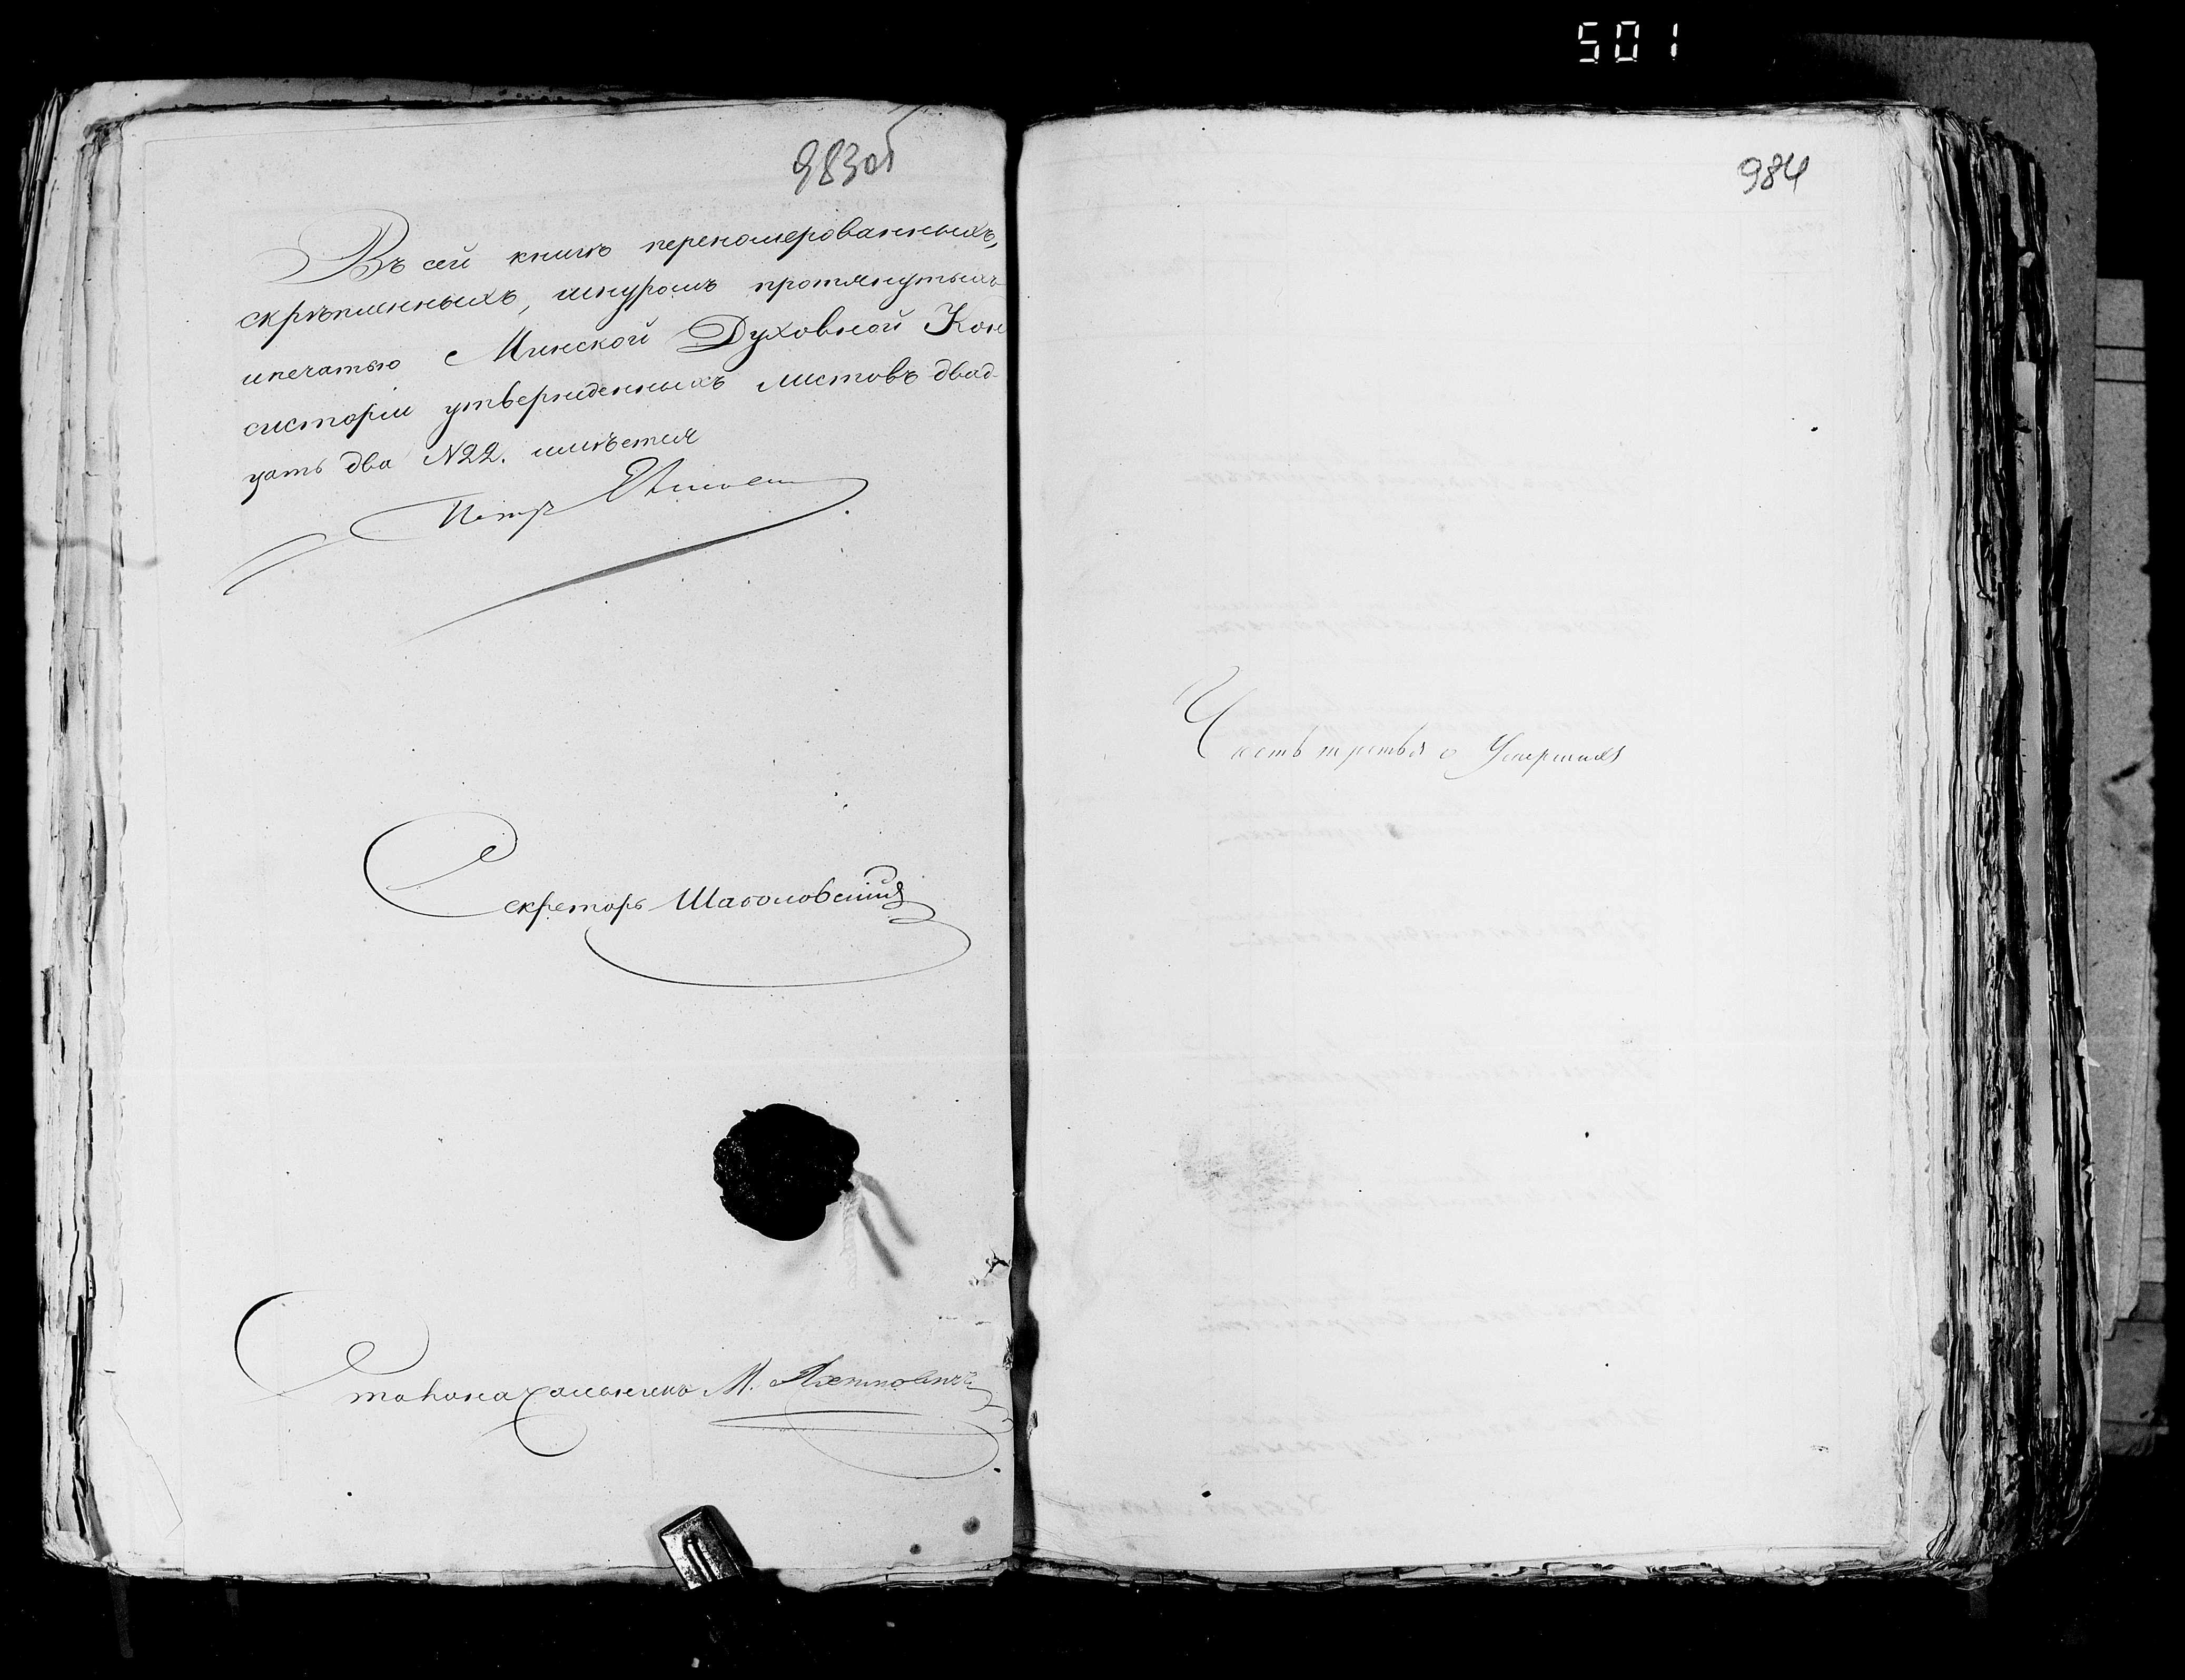 501
983об
Въ сей книгѣ перенομерованныхъ,
скрѣпленныхъ, шнуромъ протянутыхъ
и печатью Минской Духовной Кон
систоріи утвержденныхъ листовъ двад-
цать два №22. имѣется
Петръ
Секретарь Шаболовскій
Столоначальникъ М.
984
Часть третья о Умершихъ